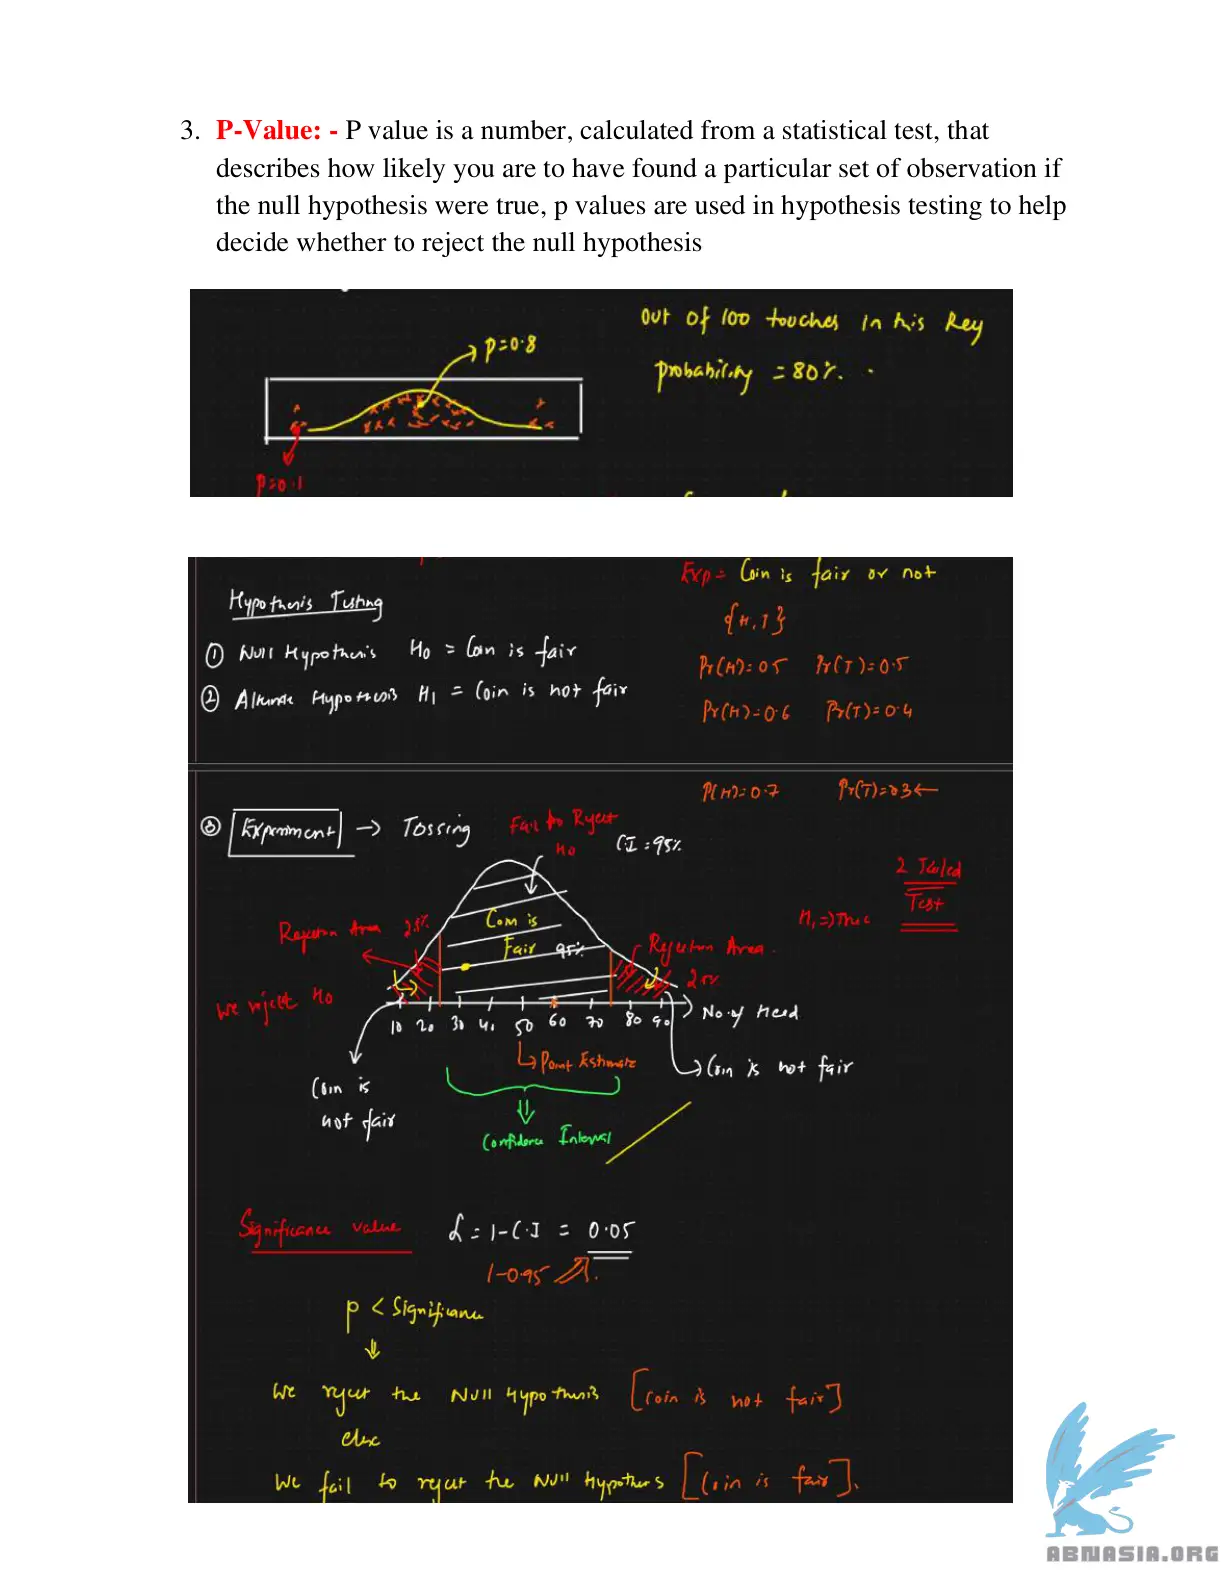 3. P-Value: - P value is a number, calculated from a statistical test, that
describes how likely you are to have found a particular set of observation if
the null hypothesis were true, p values are used in hypothesis testing to help
decide whether to reject the null hypothesis
out of 100 touches in this Key
probability = 80%.
p=0.8
p=0.1
Exp = Coin is fair or not
Hypothesis Testing
{H,T}
① Null Hypothesis H0 = Coin is fair
Pr(H)=0.5 Pr(T)=0.5
② Alternate Hypothesis H1 = Coin is not fair
Pr(H)=0.6 Pr(T)=0.4
P(H)=0.7 Pr(T)=0.3 ←
③ Experiment → Tossing
Fail to Reject
H0
C.I = 95%
2 Tailed
Test
Rejection Area 2.5%
Coin is
Fair 95%
Rejection Area.
We reject H0
10 20 30 40 50 60 70 80 90
No. of Head
Point Estimate
Coin is not fair
Coin is
not fair
Confidence Interval
Significance value α = 1-C.I = 0.05
1-0.95
p < Significance
We reject the Null Hypothesis [Coin is not fair]
else
We fail to reject the Null Hypothesis [Coin is fair].
ABNASIA.ORG